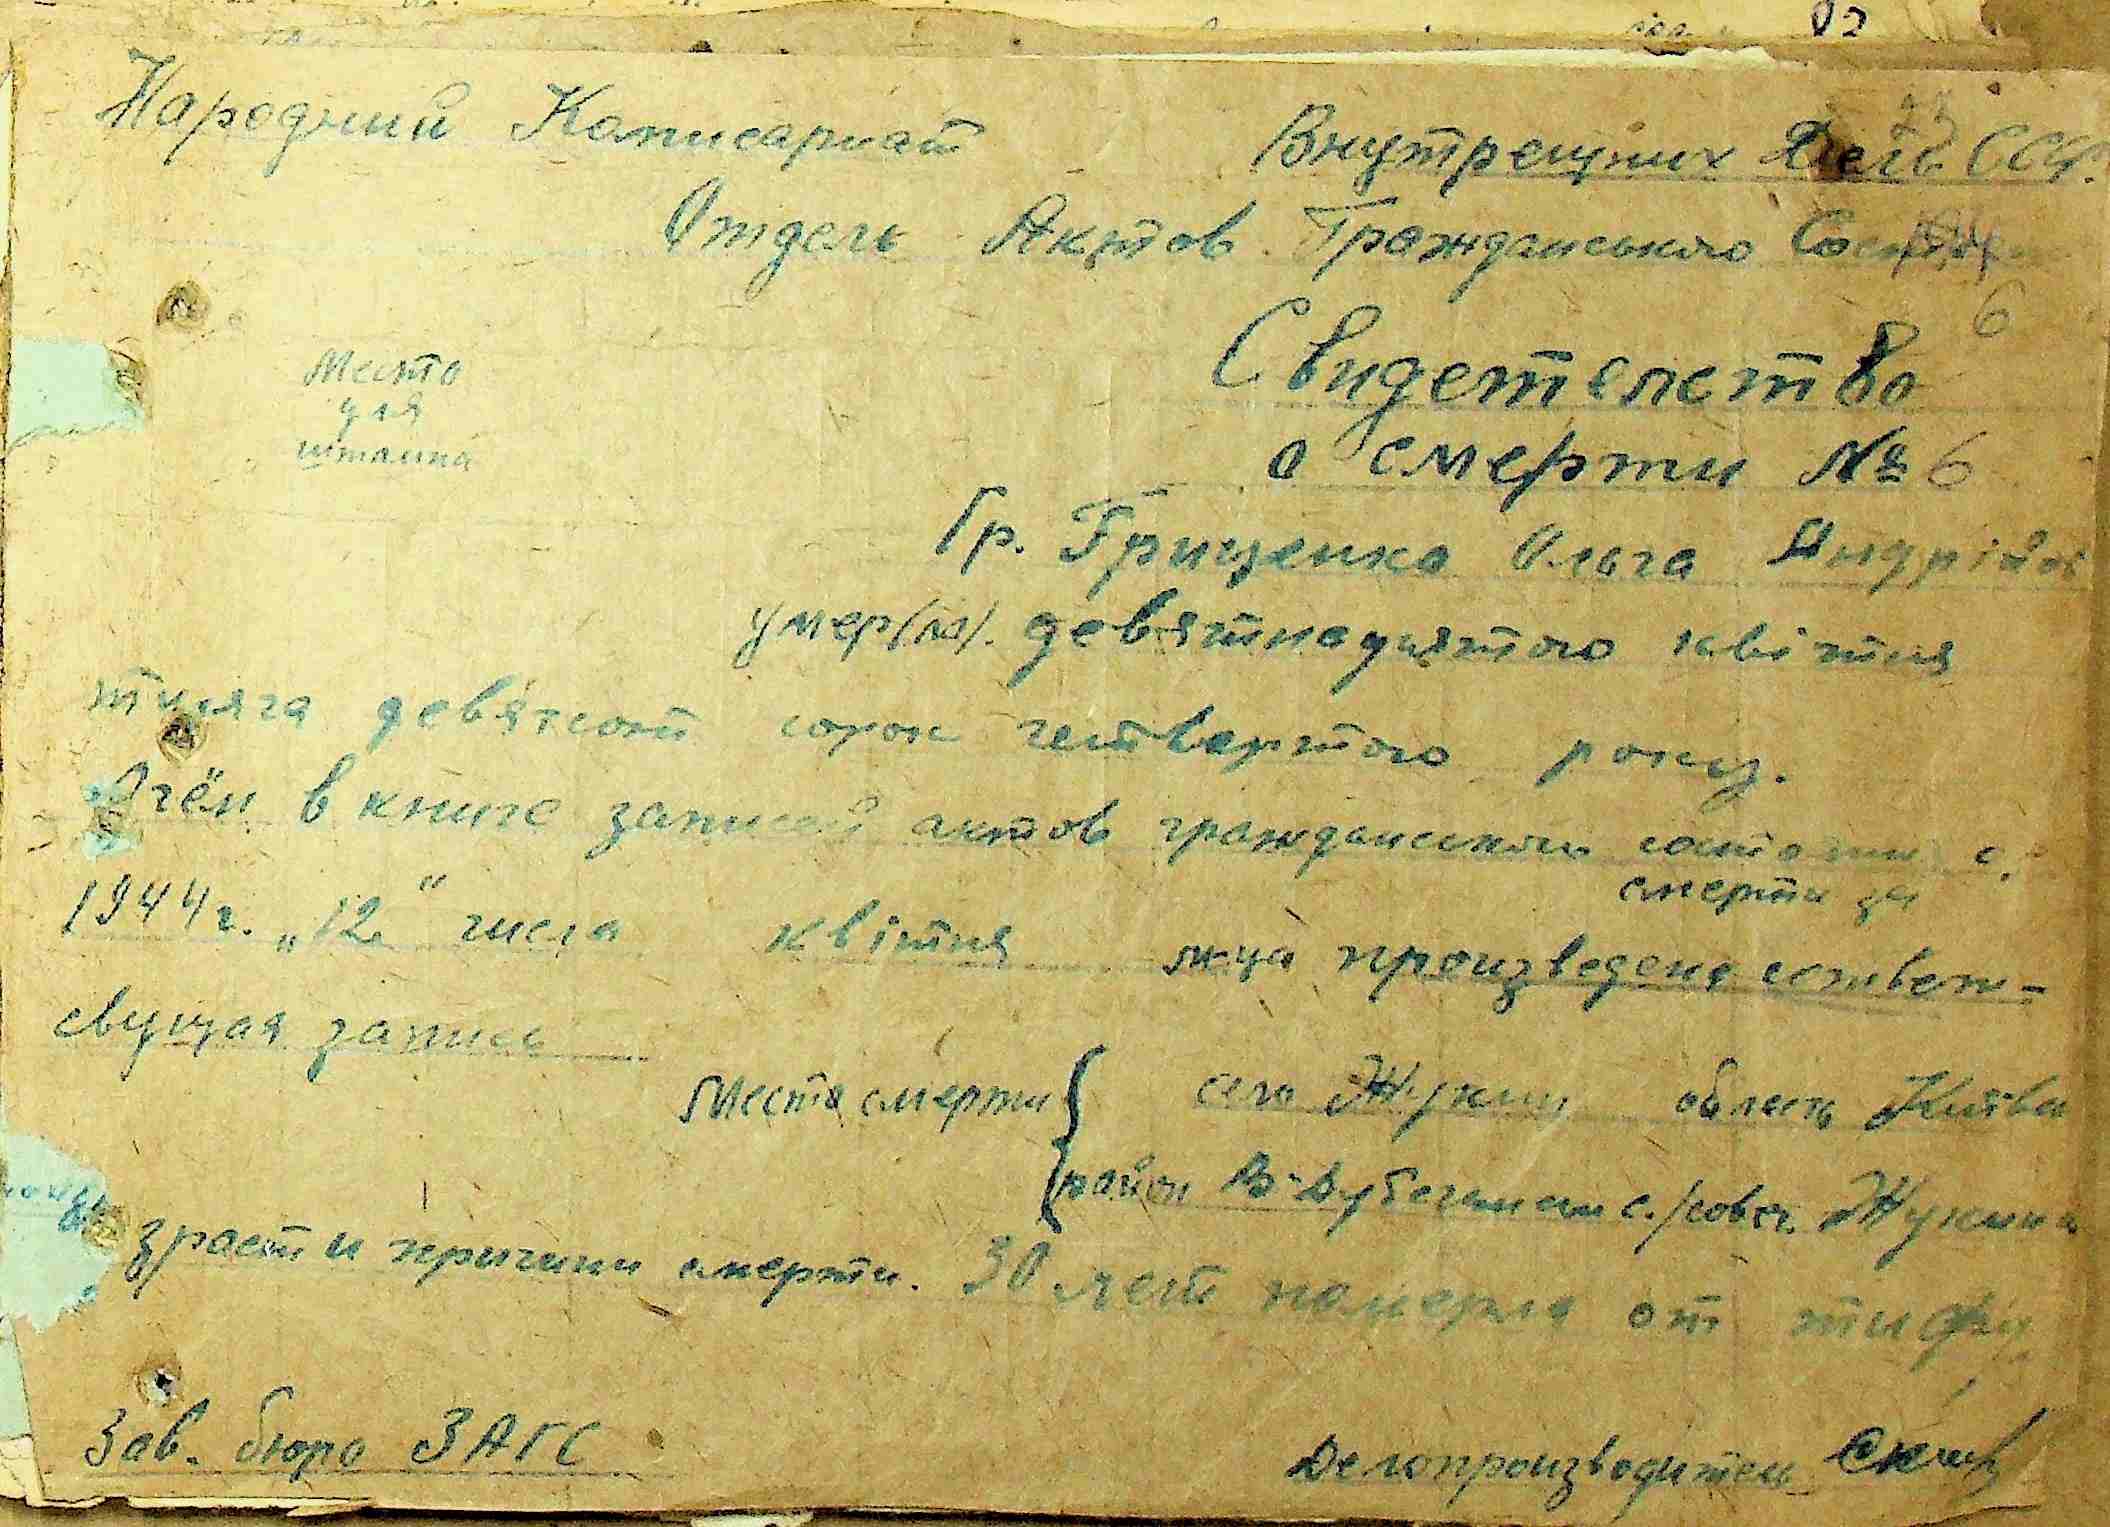 Народний Комисариат Внутрещних Дель ССР.
Отдель Актов Гражданського
6
Место
для
штампа
Свидетельство
о смерти № 6
Гр. Грищенко Ольга Андріїв
умер(ла). девятнацятого квітня
тисяча девятсот сорок четвертого року.
О чём в книге записей актов гражданского состояния о
смерти за
1944 г. „12" числа квітня м-ца произведена соответ-
свущая запись
Место смерти { село Жукин область Київсь
район В-Дубечански с./совет Жукин
зраст и причини смерти. 30 лет померла от тифу
Зав. бюро ЗАГС Делопроизводитель